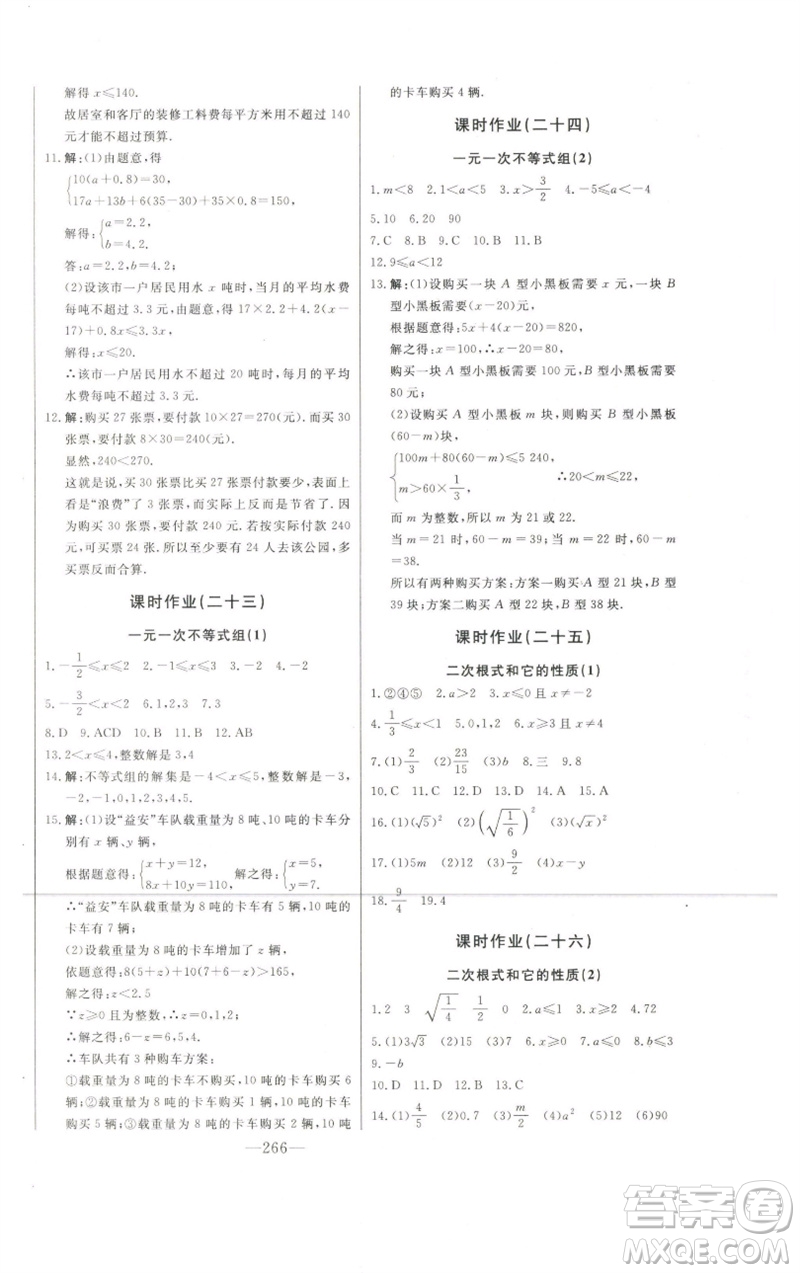 解得 x≤140.
故居室和客厅的装修工料费每平方米用不超过 140
元才能不超过预算.
11. 解:(1)由题意,得
{10(a+0.8)=30,
17a+13b+6(35-30)+35×0.8=150,
解得:{a=2.2,
b=4.2.
答:a=2.2,b=4.2;
(2)设该市一户居民用水 x 吨时,当月的平均水费
每吨不超过 3.3 元,由题意,得 17×2.2+4.2(x-
17)+0.8x≤3.3x,
解得:x≤20.
∴该市一户居民用水不超过 20 吨时,每月的平均
水费每吨不超过 3.3 元.
12. 解:购买 27 张票,要付款 10×27=270(元). 而买 30
张票,要付款 8×30=240(元).
显然,240<270.
这就是说,买 30 张票比买 27 张票付款要少,表面上看
是“浪费”了 3 张票,而实际上反而是节省了. 因
为购买 30 张票,要付款 240 元. 若按实际付款 240
元,可购买票 24 张. 所以至少要有 24 人去该公园,多
买票反而合算.
课时作业(二十三)
一元一次不等式组(1)
1. -1/2≤x≤2 2. -1<x≤1 3. -2 4. -2
5. -3/2<x≤2 6. 1,2,3 7. 3
8. D 9. ACD 10. B 11. B 12. AB
13. 2<x≤4,整数解是 3,4
14. 解:不等式组的解集是-4<x≤5,整数解是-3,
-2,-1,0,1,2,3,4,5.
15. 解:(1)设“益安”车队载重量为 8 吨、10 吨的卡车分
别有 x 辆、y 辆,
{x+y=12,
8x+10y=110, 解之得:{x=5,
y=7.
∴“益安”车队载重量为 8 吨的卡车有 5 辆,10 吨的
卡车有 7 辆;
(2)设载重量为 8 吨的卡车增加了 z 辆,
依题意得:8(5+z)+10(7+6-z)>165,
解之得:z<2.5
∵z≥0 且为整数,∴z=0,1,2;
∴解之得:6-z=6,5,4.
∴车队共有 3 种购车方案:
①载重量为 8 吨的卡车不购买,10 吨的卡车购买 6
辆;②载重量为 8 吨的卡车购买 1 辆,10 吨的卡车
购买 5 辆;③载重量为 8 吨的卡车购买 2 辆,10 吨
的卡车购买 4 辆.
课时作业(二十四)
一元一次不等式组(2)
1. m<8 2. 1<a<5 3. x>3/2 4. -5≤a<-4
5. 10 6. 20 90
7. C 8. B 9. C 10. B 11. C
12. 9≤a<12
13. 解:(1)设购买一块 A 型小黑板需要 x 元,一块 B
型小黑板需要(x-20)元,
根据题意得:5x+4(x-20)=820,
解之得:x=100,∴x-20=80,
购买一块 A 型小黑板需要 100 元,B 型小黑板需要
80 元;
(2)设购买 A 型小黑板 m 块,则购买 B 型小黑板
(60-m)块,
{100m+80(60-m)≤5 240,
m>60×1/3, ∴20<m≤22,
而 m 为整数,所以 m 为 21 或 22.
当 m=21 时,60-m=39;当 m=22 时,60-m
=38.
所以有两种购买方案:方案一购买 A 型 21 块,B 型
39 块;方案二购买 A 型 22 块,B 型 38 块.
课时作业(二十五)
二次根式和它的性质(1)
1. ②④⑤ 2. a>2 3. x≤0 且 x≠-2
4. 1/3≤x<1 5. 0,1,2 6. x≥3 且 x≠4
7. (1)2/3 (2)23/15 8. 三 9. 8
10. C 11. C 12. A 13. B 14. D 15. D
16. (1)(√5)² (2)(√(1/6))²
17. (1)5m (2)24 (3)9/2 (4)x-y
18. 9/4 19. 4
课时作业(二十六)
二次根式和它的性质(2)
1. 2 3 √(1/4) √(1/2) 0 2. a≤1 3. x≥2 4. 72
5. (1)3√3 (2)√2 6. 1 7. 2 8. 1
9. -b
10. D 11. A 12. D 13. D
14. (1)4/5 (2)0.7 (3)m/2 (4)a² (5)12 (6)90
—266—
答案圈
MXQE.COM